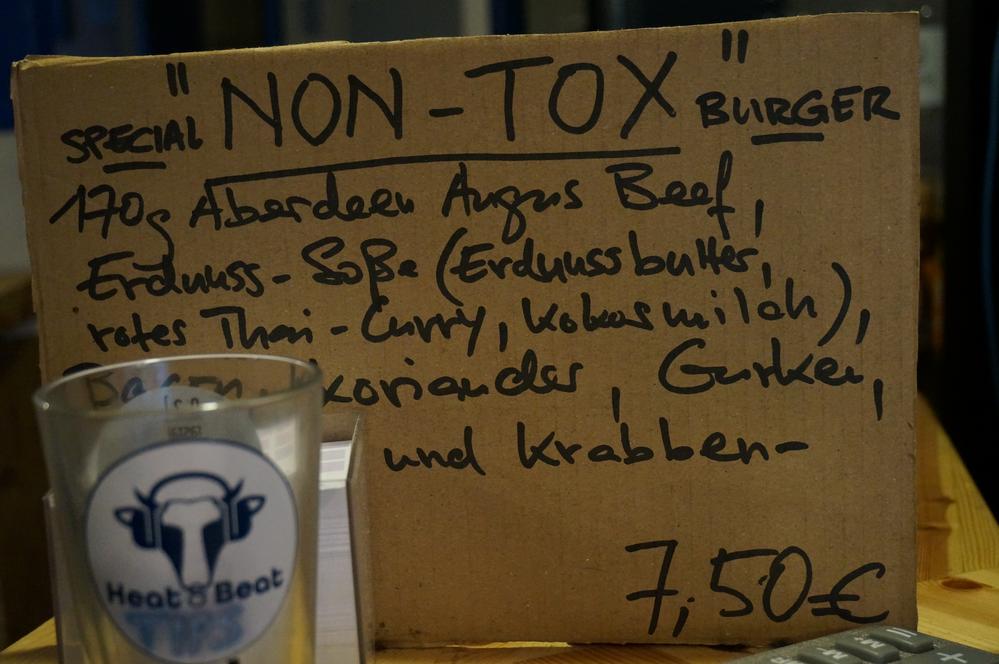 SPECIAL "NON-TOX" BURGER
170g Aberdeen Angus Beef,
Erdnuss-Soße (Erdnussbutter,
rotes Thai-Curry, Kokosmilch),
Bacon, Koriander, Gurken,
und Krabben-
7,50€
Heat & Beat
TIPS